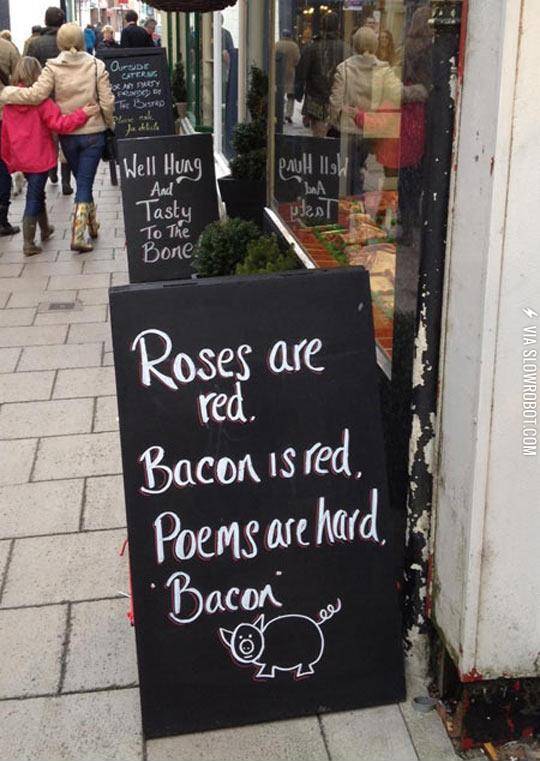 Outside
Catering
For Any Party
Provided by
The Bistro
Please ask
for details
Well Hung
And
Tasty
To The
Bone
Well Hung
And
Tasty
Roses are
red.
Bacon is red.
Poems are hard.
"Bacon"
VIA SLOWROBOT.COM